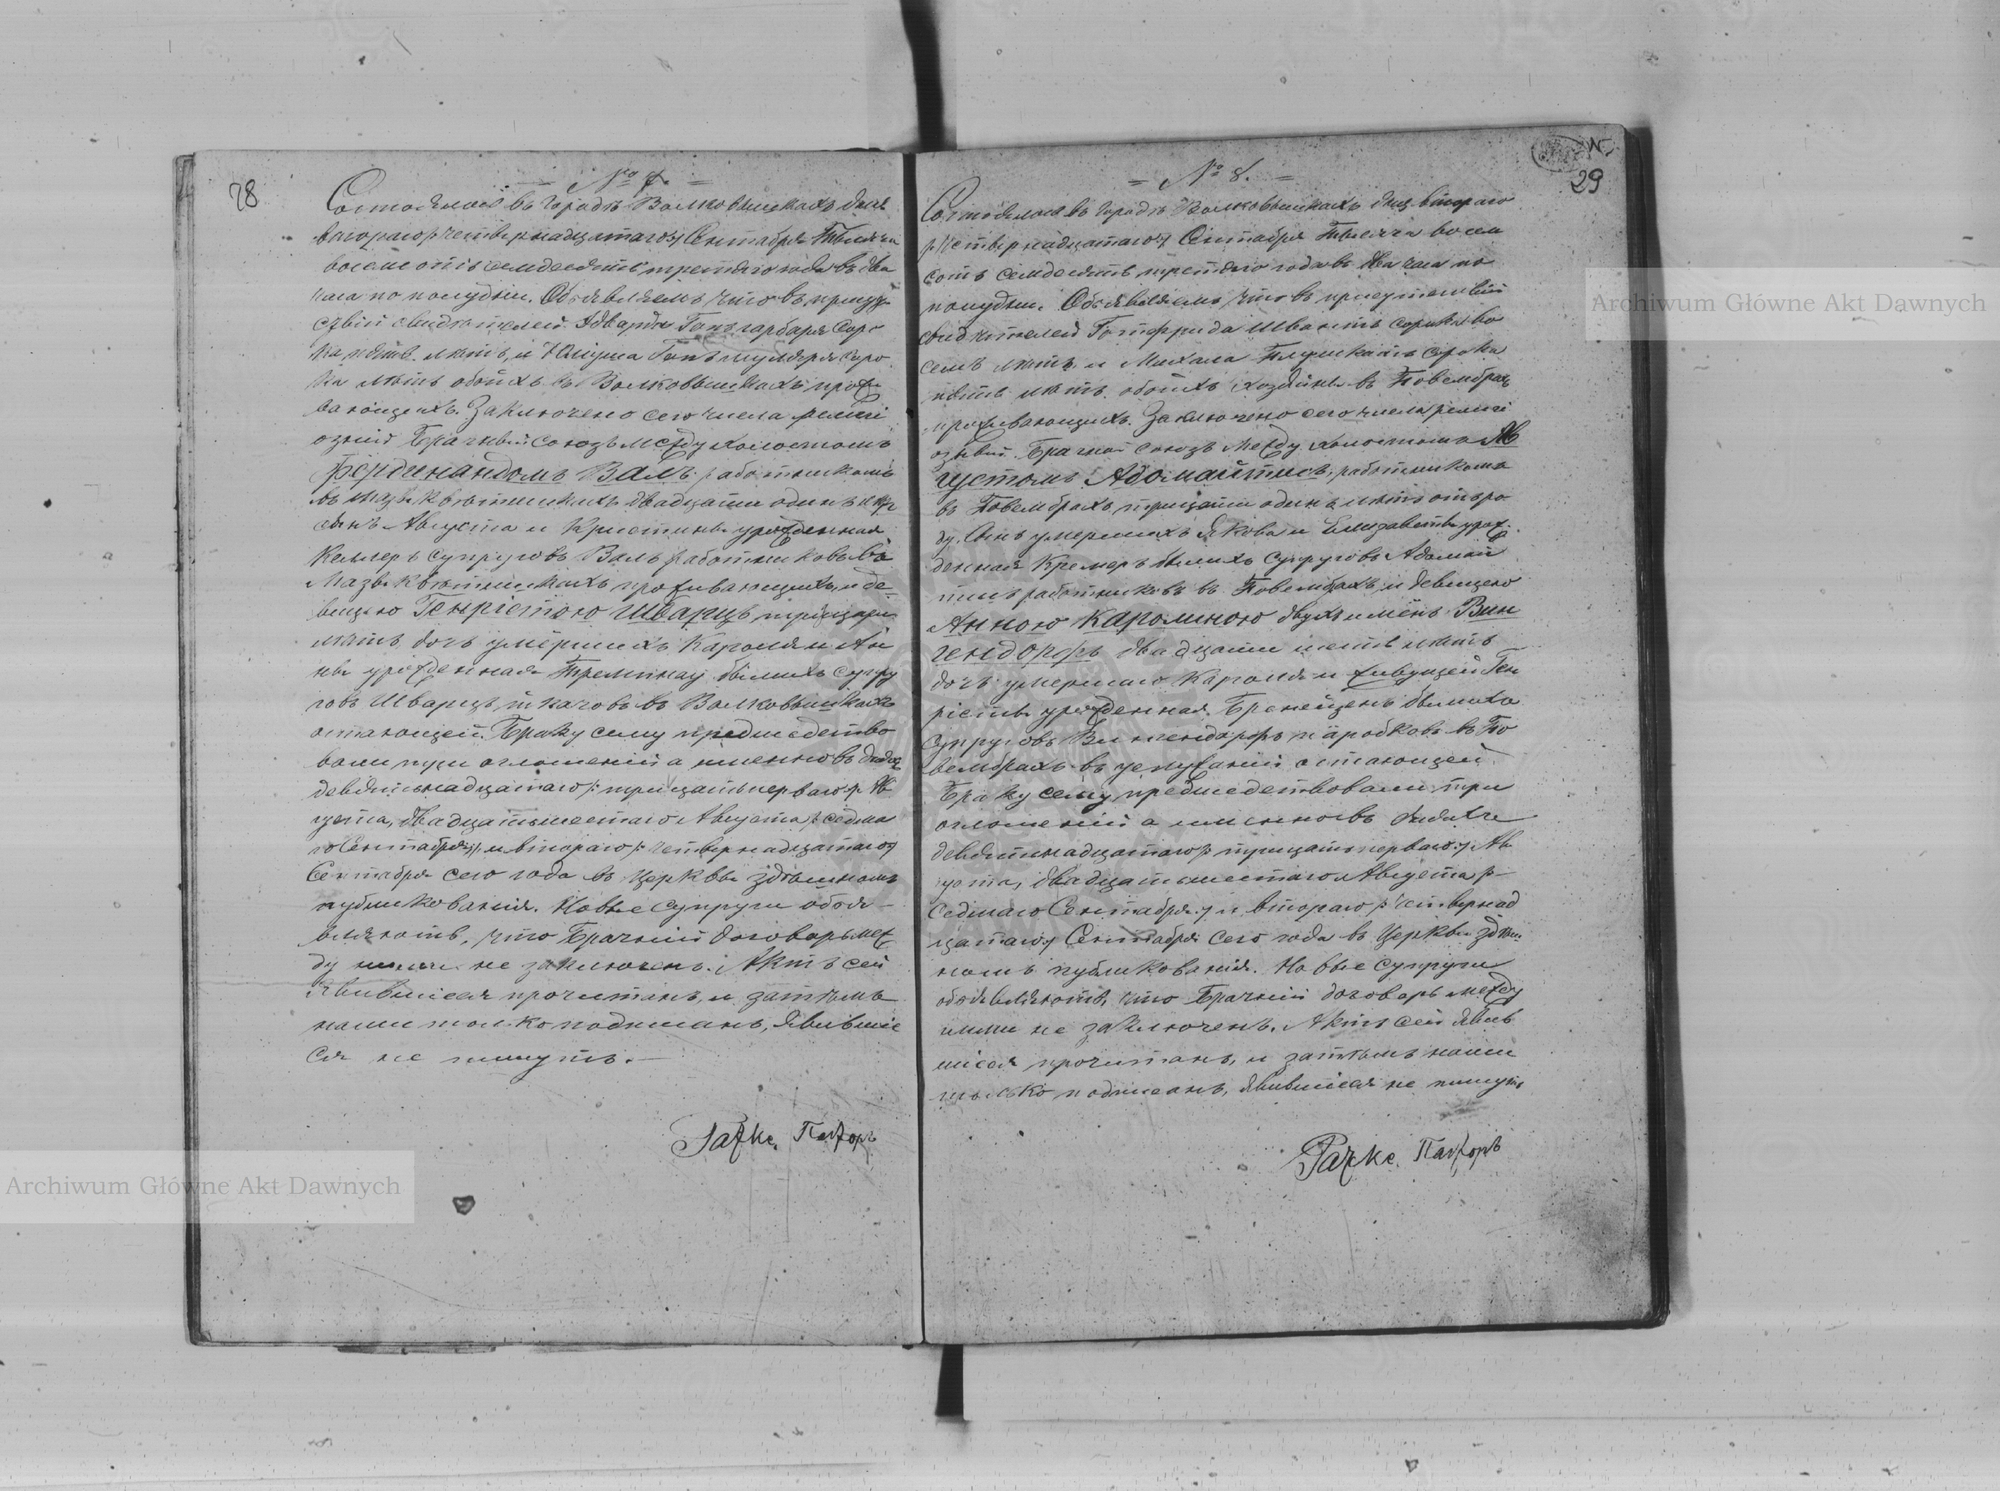 28
№ 7.
Состоялось въ городѣ Волковышкахъ дня
втораго /:четырнадцатаго:/ Сентября Тысяча
восемсотъ семдесятъ третяго года въ два
часа по полудни. Объявляемъ что въ присут-
ствіи свидѣтелей Эдварда Гапъ гарбаря соро
ка лѣтъ, и Юліуша Гапъ муляря соро
ка лѣтъ обоихъ въ Волковышкахъ прожи
вающихъ. Заключено сего числа религі
озный Брачный союзъ между холостымъ
Фердинандомъ Валъ работникомъ
двадцати одинъ
сынъ Августа и Кристины урожденная
Келлеръ супруговъ Валъ работниковъ въ
проживающихъ, и де-
вицею Генріетою Шварцъ, тридцати
лѣтъ дочь умершихъ Кароля и Ан
ны урожденная Тремпнау бывшихъ супру
говъ Шварцъ, ткачовъ въ Волковышкахъ
оставшей. Браку сему предшедство
вали три оглошеній а именно въ дняхъ
девятьнадцатаго /:тридцать перваго:/ Ав
густа, двадцать шестаго Августа /:седма
го Сентября:/ и втораго /:четырнадцатаго:/
Сентября сего года въ Церквы здѣшномъ
публикованія. Новые супруги объя-
вляютъ, что Брачній договоръ меж
ду ними не заключенъ. Актъ сей
явившіеся прочитанъ, и затѣмъ
нами только подписанъ, явившіе
ся не пишутъ.—
Пасторъ
29
№ 8.
Состоялось въ городѣ Волковышкахъ дня втораго
/:четырнадцатаго:/ Сентября Тысяча восем
сотъ семдесятъ третяго года въ два часа по
полудни. Объявляемъ что въ присутствіи
свидѣтелей Готфрида Швантъ сорока во
семъ лѣтъ и Михала сорока
лѣтъ обоихъ хозяйны въ Повембрахъ
проживающихъ. Заключено сего числа религі
озный Брачный союзъ между холостымъ Ав
густомъ Адомайтисъ, работникомъ
въ Повембрахъ, тридцати одинъ лѣтъ отъ ро
ду, сынъ умершихъ Якова и Елизаветы урож
денная Кремеръ бывшихъ супруговъ Адомай
тисъ работниковъ въ Повембрахъ, и девицею
Анною Каролиною двухъ именъ Вин
гендорфъ двадцати шесть лѣтъ
дочь умершаго Кароля и живущей Ген
ріеты урожденная бывшихъ
супруговъ Вингендорфъ паробковъ въ По
вембрахъ въ оставшей
Браку сему предшедствовали три
оглошеній а именно въ дняхъ
девятьнадцатаго /:тридцать перваго:/ Ав
густа, двадцать шестаго Августа /:
седмаго Сентября:/ и втораго /:четырнад
цатаго:/ Сентября сего года въ Церквы здѣш
номъ публикованія. Новые супруги
объявляютъ, что Брачній договоръ между
ними не заключенъ. Актъ сей явив
шіеся прочитанъ, и затѣмъ нами
только подписанъ, явившіеся не пишутъ
Пасторъ
Archiwum Główne Akt Dawnych
Archiwum Główne Akt Dawnych